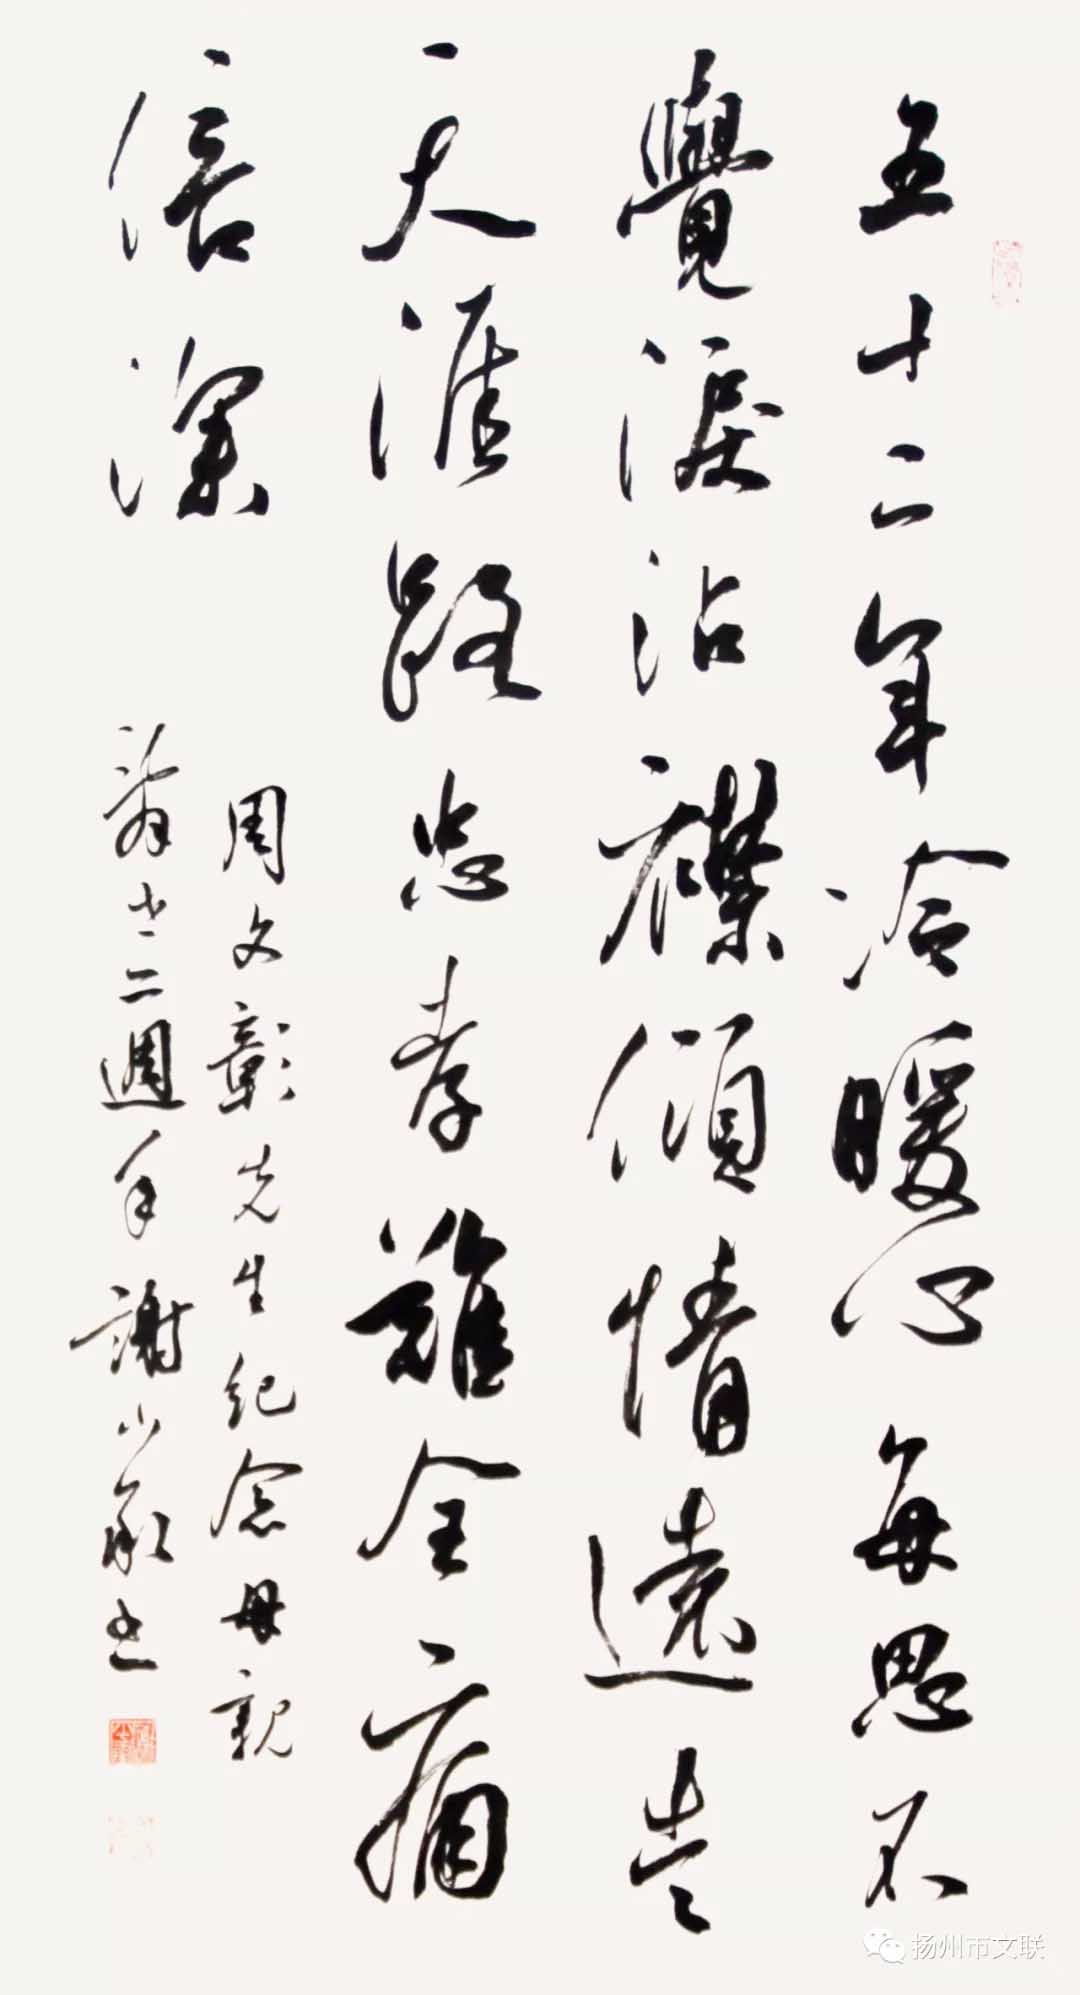 五十二年冷暖心每思不
覺淚沾襟傾情遠去
天涯路忠孝難全痛
倍深
周文彰先生紀念母親
二週年謝少承書
扬州市文联